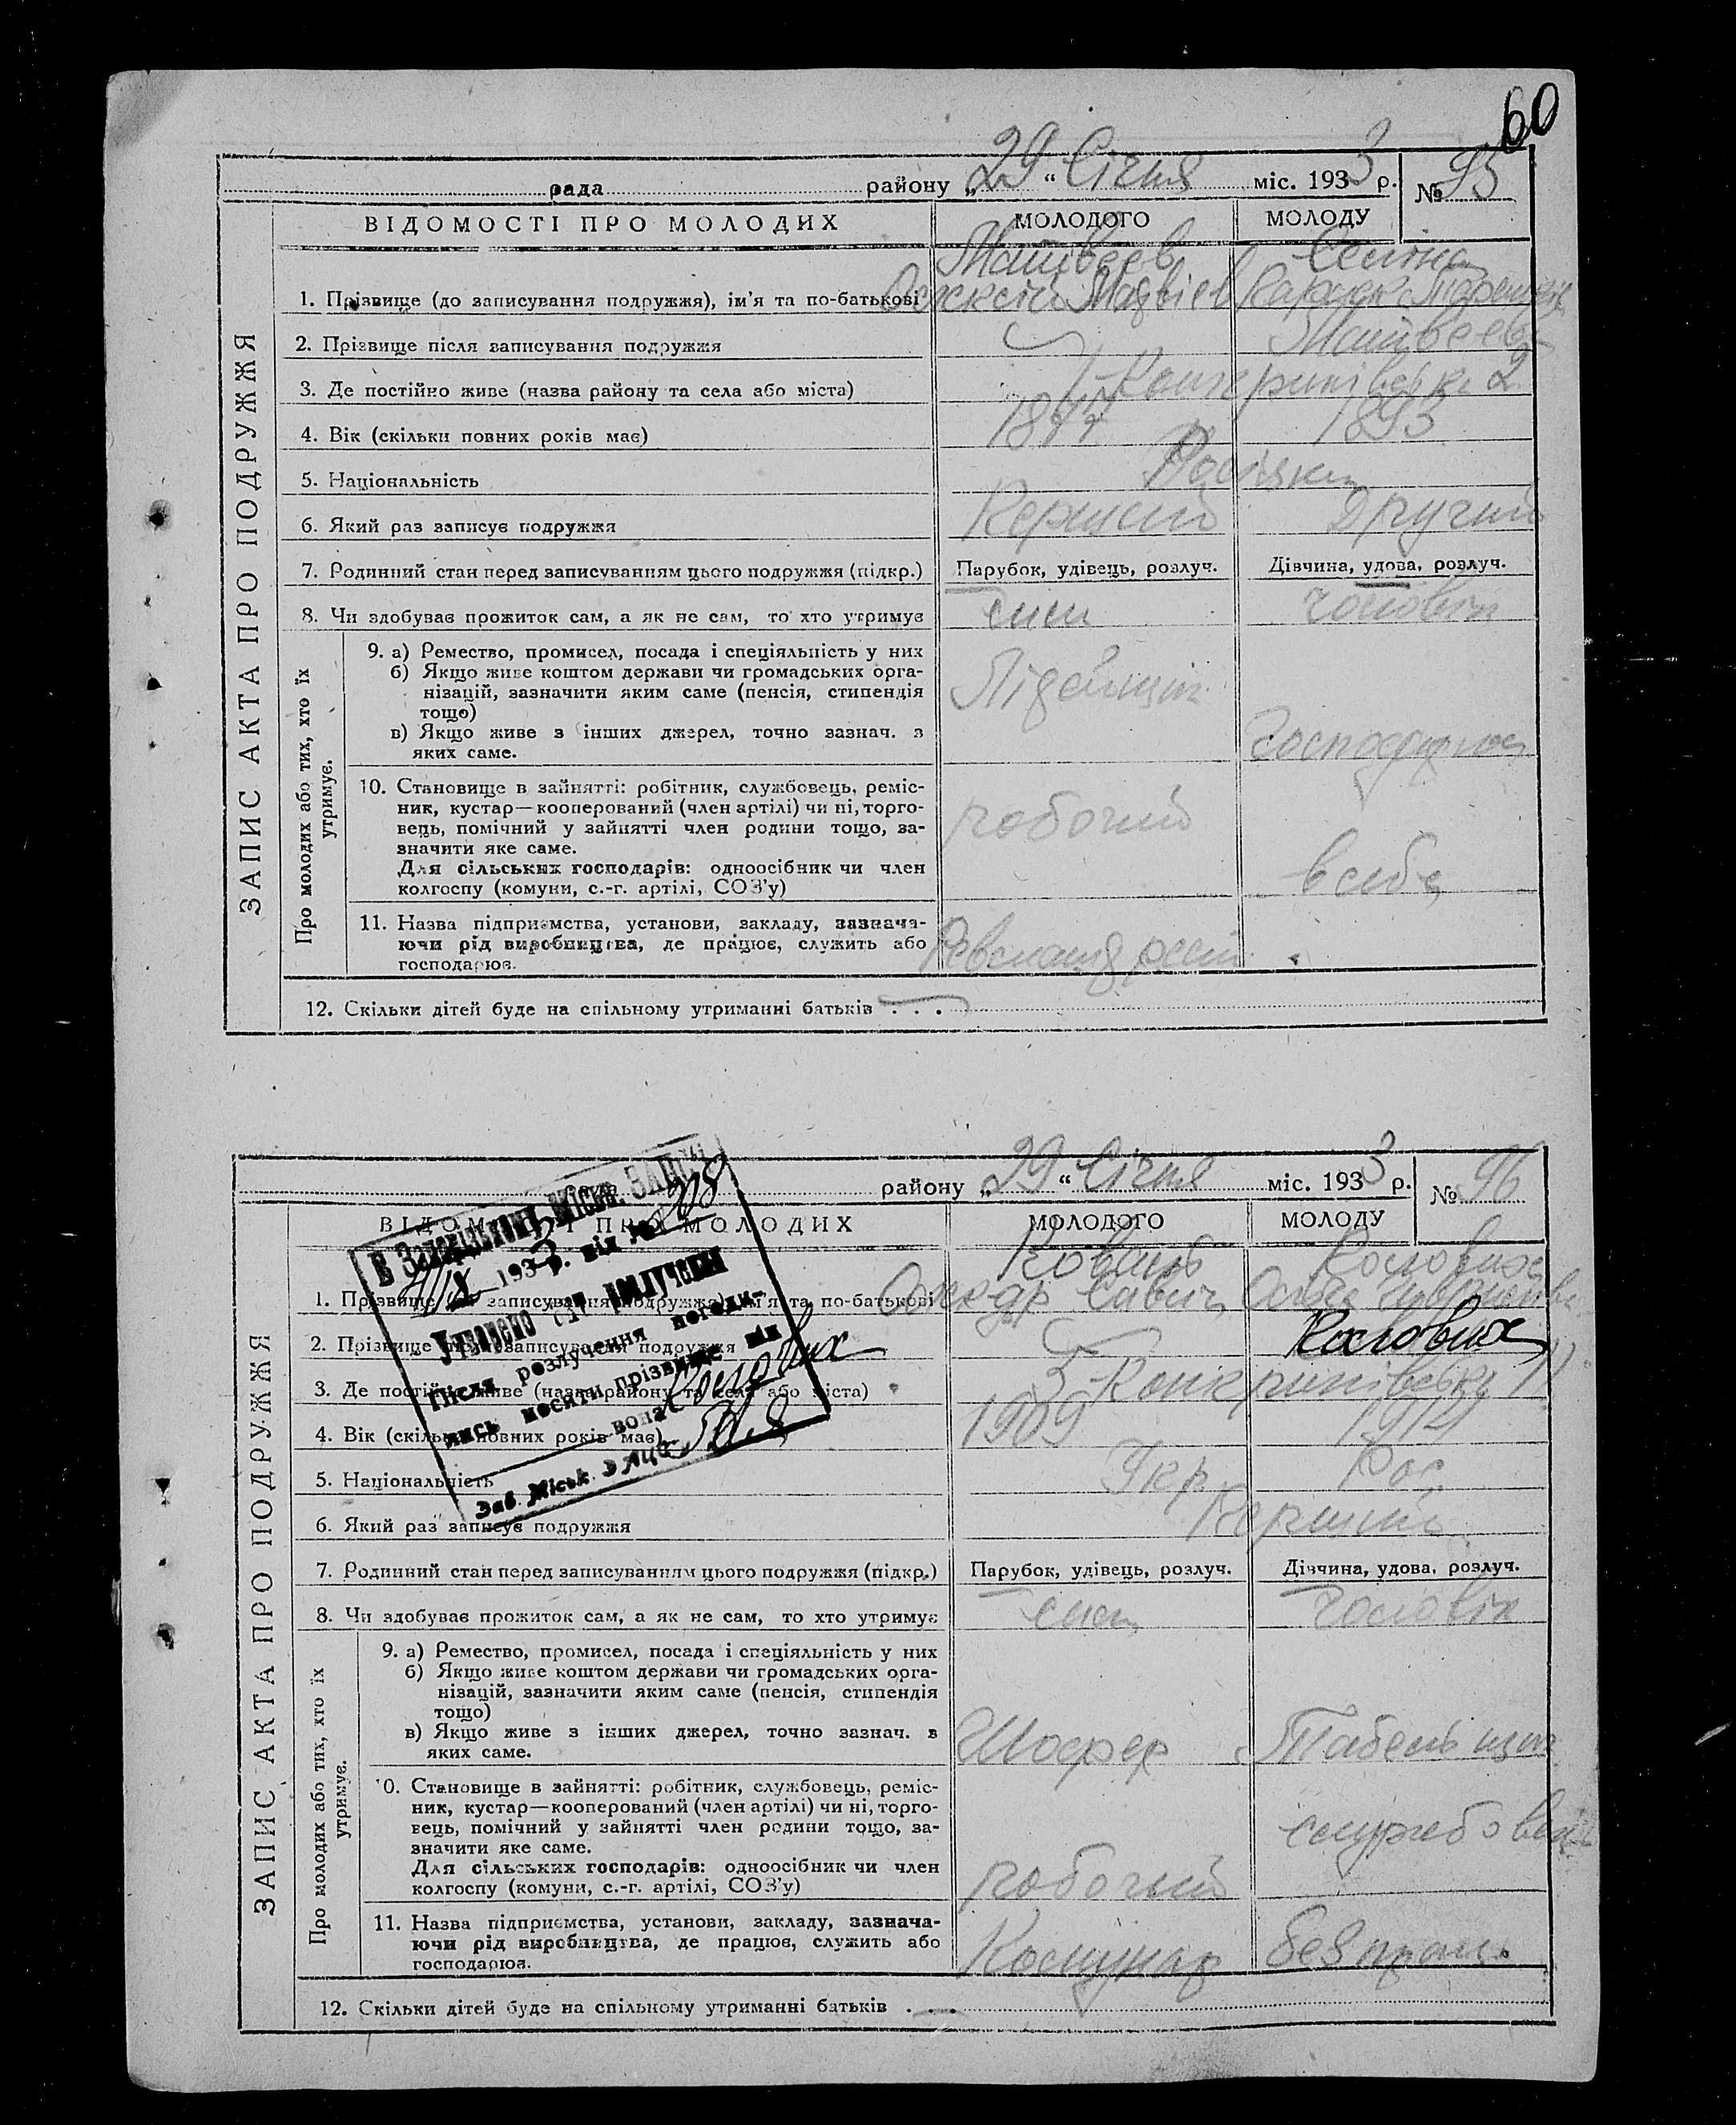 60
рада району „ 29 “ Січня міс. 1933 р. № 95
ЗАПИС АКТА ПРО ПОДРУЖЖЯ
ВІДОМОСТІ ПРО МОЛОДИХ МОЛОДОГО МОЛОДУ
Матвеев
1. Прізвище (до записування подружжя), ім'я та по-батькові
2. Прізвище після записування подружжя Матвеева
3. Де постійно живе (назва району та села або міста)
4. Вік (скільки повних років має) 1893
5. Національність
6. Який раз записує подружжя Перший Другий
7. Родинний стан перед записуванням цього подружжя (підкр.) Парубок, удівець, розлуч. Дівчина, удова, розлуч.
8. Чи здобуває прожиток сам, а як не сам, то хто утримує сам чоловік
Про молодих або тих, хто їх утримує.
9. а) Ремество, промисел, посада і спеціяльність у них
б) Якщо живе коштом держави чи громадських орга-
нізацій, зазначити яким саме (пенсія, стипендія
тощо)
в) Якщо живе з інших джерел, точно зазнач. з
яких саме.
10. Становище в зайнятті: робітник, службовець, реміс-
ник, кустар—кооперований (член артілі) чи ні, торго-
вець, помічний у зайнятті член родини тощо, за-
значити яке саме. робочий
Для сільських господарів: одноосібник чи член
колгоспу (комуни, с.-г. артілі, СОЗ'у) в себе
11. Назва підприємства, установи, закладу, зазнача-
ючи рід виробництва, де працює, служить або
господарює.
12. Скільки дітей буде на спільному утриманні батьків . . .
району „ 29 “ Січня міс. 1933 р. № 96
ЗАПИС АКТА ПРО ПОДРУЖЖЯ
ВІДОМОСТІ ПРО МОЛОДИХ МОЛОДОГО МОЛОДУ
В Запорізькому Міськ. ЗАГСі
193 р. від №
Утворено акт розлучення
Після розлучення погоди-
лись носити прізвище він
вона
Зав. Міськ. ЗАЦС
1. Прізвище (до записування подружжя), ім'я та по-батькові
2. Прізвище після записування подружжя
3. Де постійно живе (назва району та села або міста)
4. Вік (скільки повних років має) 1909 1914
5. Національність Укр. Рос.
6. Який раз записує подружжя Перший
7. Родинний стан перед записуванням цього подружжя (підкр.) Парубок, удівець, розлуч. Дівчина, удова, розлуч.
8. Чи здобуває прожиток сам, а як не сам, то хто утримує сам чоловік
Про молодих або тих, хто їх утримує.
9. а) Ремество, промисел, посада і спеціяльність у них
б) Якщо живе коштом держави чи громадських орга-
нізацій, зазначити яким саме (пенсія, стипендія
тощо)
в) Якщо живе з інших джерел, точно зазнач. з
яких саме. Шофер
10. Становище в зайнятті: робітник, службовець, реміс-
ник, кустар—кооперований (член артілі) чи ні, торго-
вець, помічний у зайнятті член родини тощо, за-
значити яке саме.
Для сільських господарів: одноосібник чи член
колгоспу (комуни, с.-г. артілі, СОЗ'у) робочий
11. Назва підприємства, установи, закладу, зазнача-
ючи рід виробництва, де працює, служить або
господарює. Комунар
12. Скільки дітей буде на спільному утриманні батьків . . .